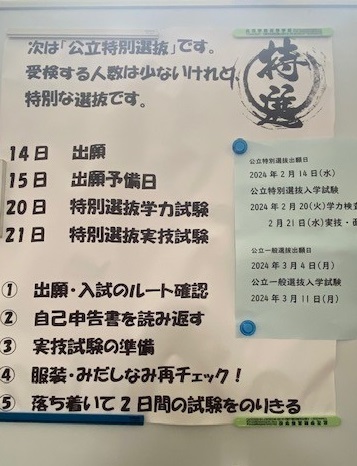 次は「公立特別選抜」です。
受検する人数は少ないけれど、
特別な選抜です。
特選
14日 出願
15日 出願予備日
20日 特別選抜学力試験
21日 特別選抜実技試験
① 出願・入試のルート確認
② 自己申告書を読み返す
③ 実技試験の準備
④ 服装・みだしなみ再チェック!
⑤ 落ち着いて2日間の試験をのりきる
公立特別選抜出願日
2024年2月14日(水)
公立特別選抜入学試験
2024年2月20(火)学力検査
2月21日(水)実技・面
公立一般選抜出願日
2024年3月4日(月)
公立一般選抜入学試験
2024年3月11日(月)